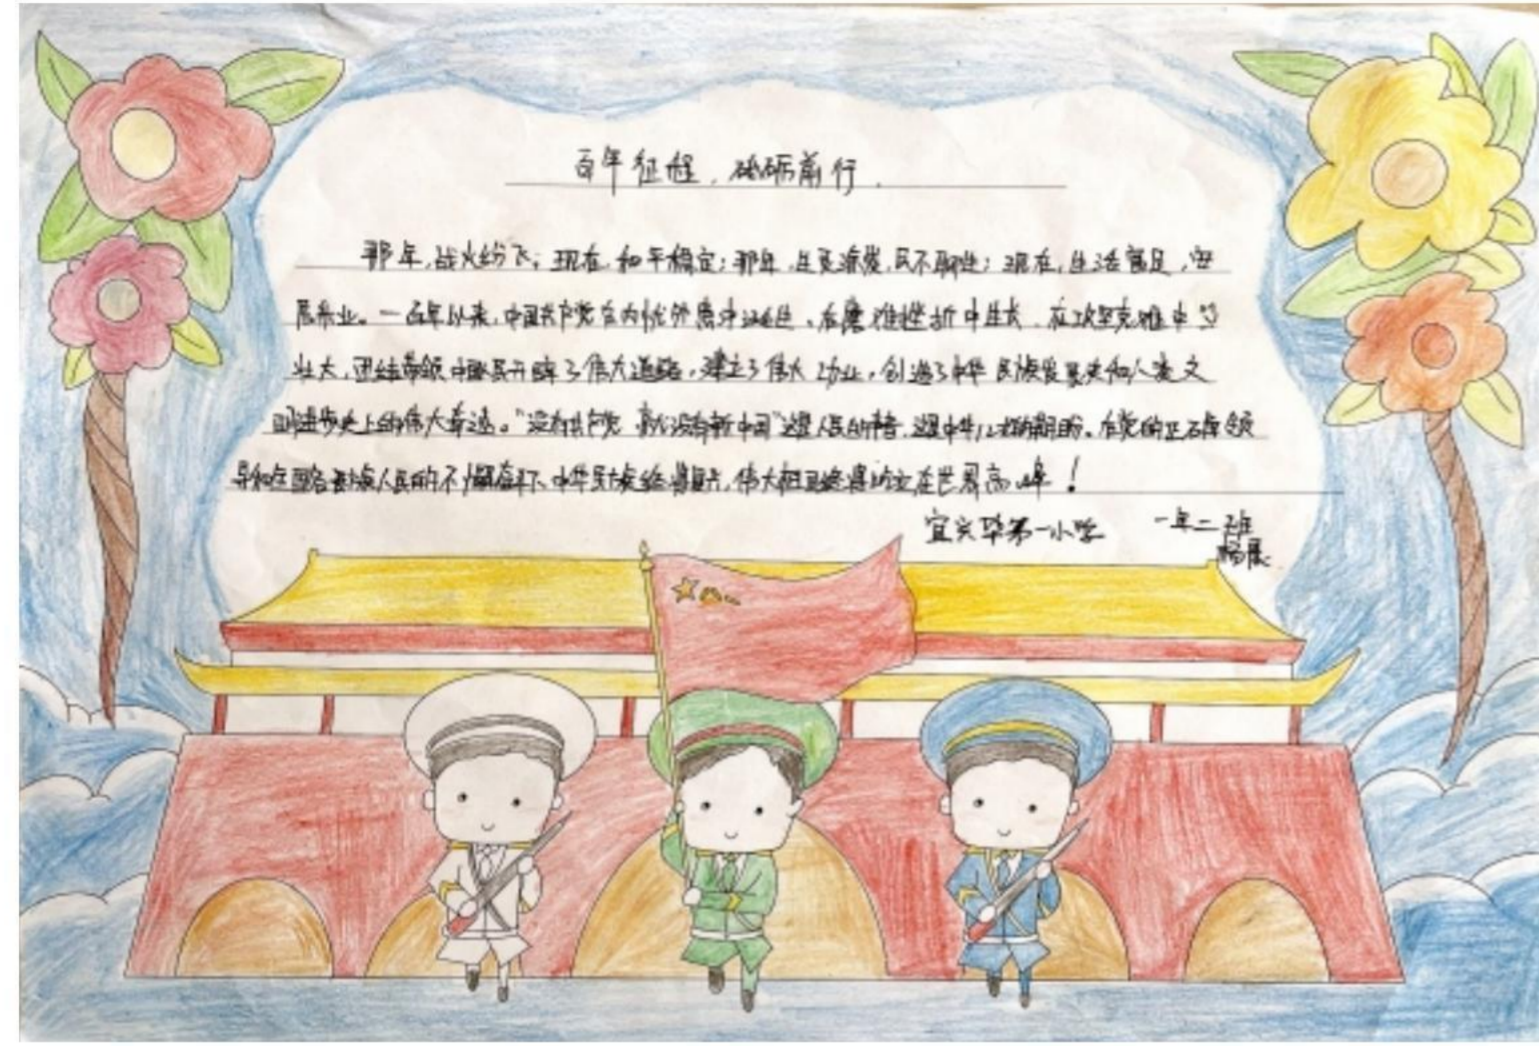 百年征程,砥砺前行.
那年,战火纷飞;现在,和平稳定;那年,生灵涂炭,民不聊生;现在,生活富足,安
居乐业。一百年以来,中国共产党在内忧外患中诞生、在磨难挫折中生长、在攻坚克难中
壮大,团结带领中国人民开辟了伟大道路,建立了伟大功业,创造了中华民族发展史和人类文
明进步史上的伟大奇迹。"没有共产党 就没有新中国"这是人民的,这是中华儿女的期盼。在党的正确领
导和全国各族人民的不懈奋斗下、中华民族终将复兴,伟大祖国终将屹立在世界高峰!
宜宾 第一小学 一年二班
杨晨